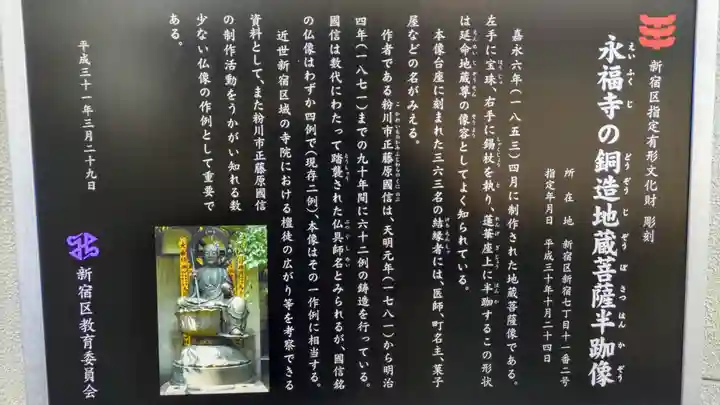 新宿区指定有形文化財 彫刻
永福寺の銅造地蔵菩薩半跏像
えいふくじ どうぞうじぞうぼさつはんかぞう
所在地 新宿区新宿七丁目十一番二号
指定年月日 平成三十年十月二十四日
嘉永六年(一八五三)四月に制作された地蔵菩薩像である。
左手に宝珠、右手に錫杖を執り、蓮華座上に半跏するこの形状
は延命地蔵尊の像容としてよく知られている。
本像台座に刻まれた三六三名の結縁者には、医師、町名主、菓子
屋などの名がみえる。
作者である粉川市正藤原國信は、天明元年(一七八一)から明治
四年(一八七一)までの九十年間に六十二例の鋳造を行っている。
國信は数代にわたって踏襲された仏具師名とみられるが、國信銘
の仏像はわずか四例で(現存二例)、本像はその一作例に相当する。
近世新宿区域の寺院における檀徒の広がり等を考察できる
資料として、また粉川市正藤原國信
の制作活動をうかがい知れる数
少ない仏像の作例として重要で
ある。
平成三十一年三月二十九日
新宿区教育委員会